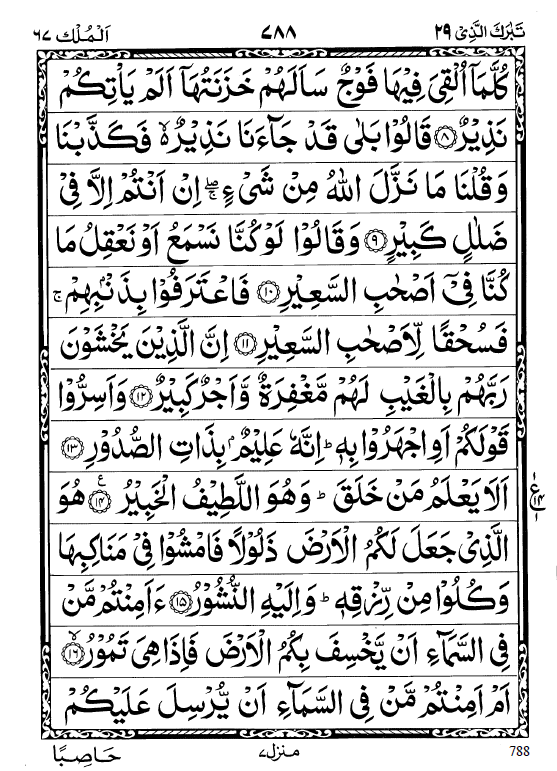 تَبٰرَكَ الَّذِیْ ٢٩ ٧٨٨ اَلْمُلْك ٦٧
كُلَّمَاۤ اُلْقِیَ فِیْهَا فَوْجٌ سَاَلَهُمْ خَزَنَتُهَاۤ اَلَمْ یَاْتِكُمْ
نَذِیْرٌ ٨ قَالُوْا بَلٰى قَدْ جَآءَنَا نَذِیْرٌ ۙ۬ فَكَذَّبْنَا
وَ قُلْنَا مَا نَزَّلَ اللّٰهُ مِنْ شَیْءٍ ۖۚ اِنْ اَنْتُمْ اِلَّا فِیْ
ضَلٰلٍ كَبِیْرٍ ٩ وَ قَالُوْا لَوْ كُنَّا نَسْمَعُ اَوْ نَعْقِلُ مَا
كُنَّا فِیْۤ اَصْحٰبِ السَّعِیْرِ ١٠ فَاعْتَرَفُوْا بِذَنْۢبِهِمْ ۚ
فَسُحْقًا لِّاَصْحٰبِ السَّعِیْرِ ١١ اِنَّ الَّذِیْنَ یَخْشَوْنَ
رَبَّهُمْ بِالْغَیْبِ لَهُمْ مَّغْفِرَةٌ وَّ اَجْرٌ كَبِیْرٌ ١٢ وَ اَسِرُّوْا
قَوْلَكُمْ اَوِ اجْهَرُوْا بِهٖ ؕ اِنَّهٗ عَلِیْمٌۢ بِذَاتِ الصُّدُوْرِ ١٣
اَلَا یَعْلَمُ مَنْ خَلَقَ ؕ وَ هُوَ اللَّطِیْفُ الْخَبِیْرُ ١٤ ع هُوَ
ع ١٤
الَّذِیْ جَعَلَ لَكُمُ الْاَرْضَ ذَلُوْلًا فَامْشُوْا فِیْ مَنَاكِبِهَا
وَ كُلُوْا مِنْ رِّزْقِهٖ ؕ وَ اِلَیْهِ النُّشُوْرُ ١٥ ءَاَمِنْتُمْ مَّنْ
فِی السَّمَآءِ اَنْ یَّخْسِفَ بِكُمُ الْاَرْضَ فَاِذَا هِیَ تَمُوْرُ ۙ ١٦
اَمْ اَمِنْتُمْ مَّنْ فِی السَّمَآءِ اَنْ یُّرْسِلَ عَلَیْكُمْ
788 منزل ٧ حَاصِبًا